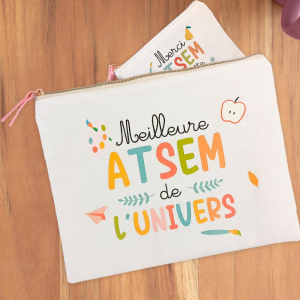 Merci
ATSEM
Meilleure
ATSEM
de
L'UNIVERS